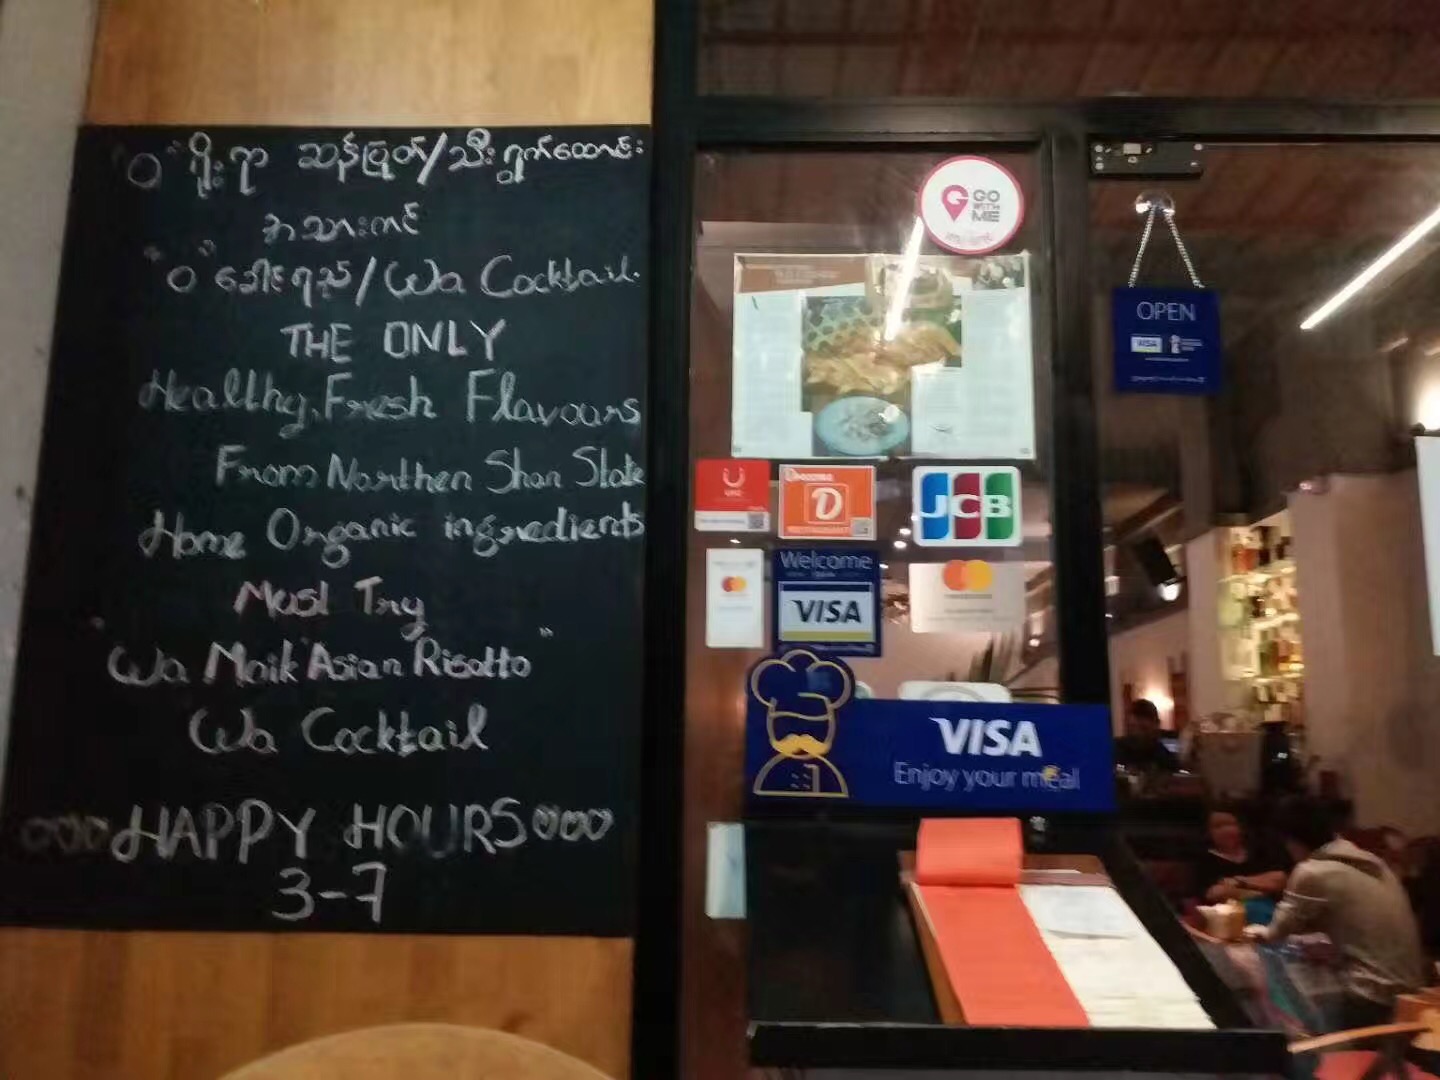 "ဝ" ရိုးရာ ဆန်ပြုတ်/သီးရွက်ထောင်း
အသားကင်
"ဝ" ခေါင်ရည်/Wa Cocktail.
THE ONLY
Healthy, Fresh Flavours
From Northen Shan State
Home Organic ingredients
Must Try
"Wa Moik Asian Risotto"
Wa Cocktail
HAPPY HOURS
3-7
GO
WITH
ME
OPEN
VISA
D
JCB
Welcome
VISA
VISA
Enjoy your meal